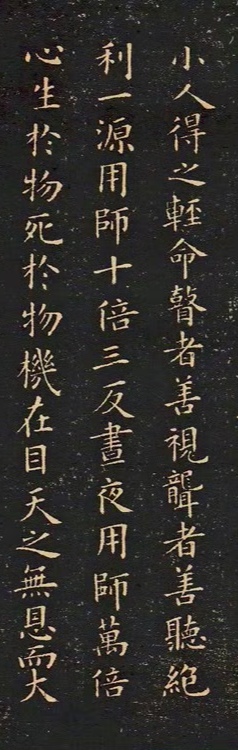 小人得之輕命瞽者善視聾者善聽絶
利一源用師十倍三反晝夜用師萬倍
心生於物死於物機在目天之無恩而大